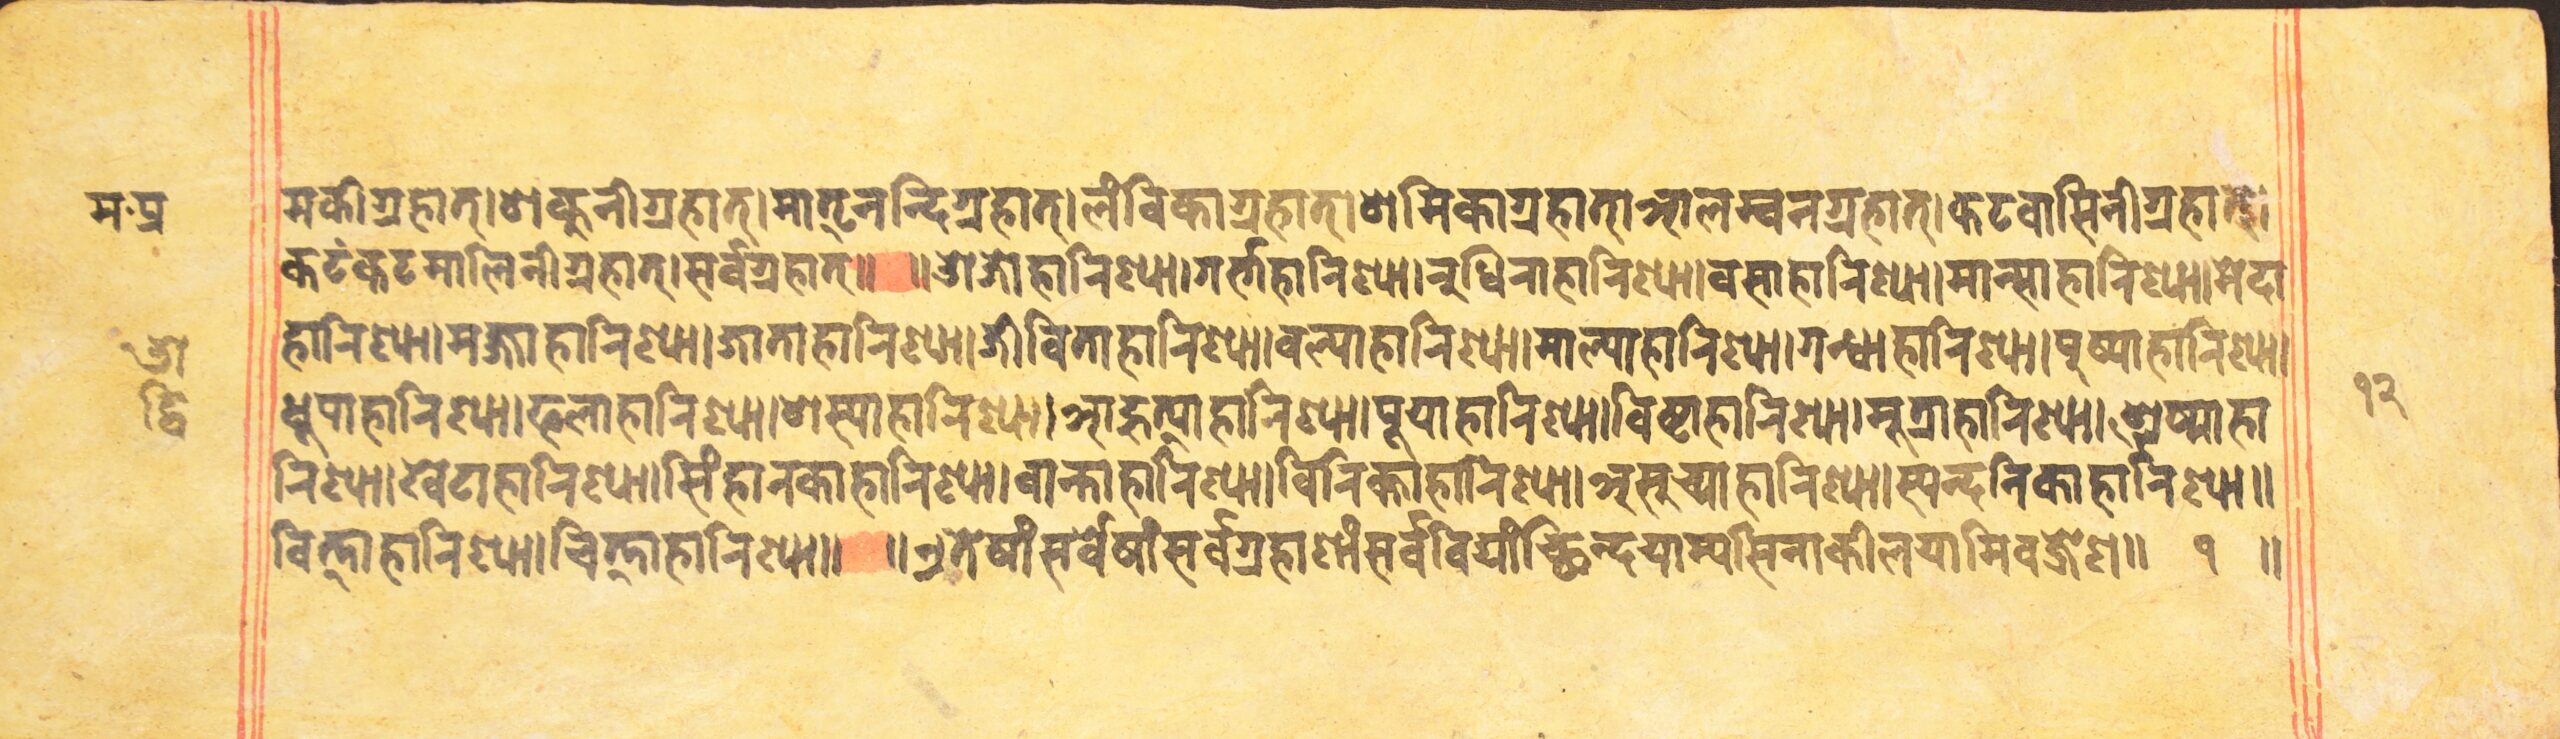 म‧प्र
मकीग्रहात्।शकुनीग्रहात्।मातृनन्दिग्रहात्।लंविकाग्रहात्।शमिकाग्रहात्।आलम्वनग्रहात्।कटवासिनीग्रहात्।
कटंकटमालिनीग्रहात्।सर्वग्रहात्॥ ॥ओजोहारिण्या।गर्त्ताहारिण्या।रुधिराहारिण्या।वसाहारिण्या।मान्साहारिण्या।मेदा
हारिण्या।मज्जाहारिण्या।जाताहारिण्या।जीविताहारिण्या।वल्याहारिण्या।माल्याहारिण्या।गन्धाहारिण्या।पुष्पाहारिण्या।
धूपाहारिण्या।फलाहारिण्या।शस्याहारिण्या।आहुत्याहारिण्या।पूयाहारिण्या।विष्टाहारिण्या।मूत्राहारिण्या।श्लेष्माहा
रिण्या।खेटाहारिण्या।सिंहानकाहारिण्या।वान्ताहारिण्या।विरिक्ताहारिण्या।असुच्याहारिण्या।स्यन्दनिकाहारिण्या॥
वित्ताहारिण्या।चित्ताहारिण्या॥ ॥एतेषांसर्वेषांसर्वग्रहाणांसर्वविद्यांच्छिन्दयाम्यसिनाकीलयामिवज्रेण॥ १ ॥
द्वि
१२